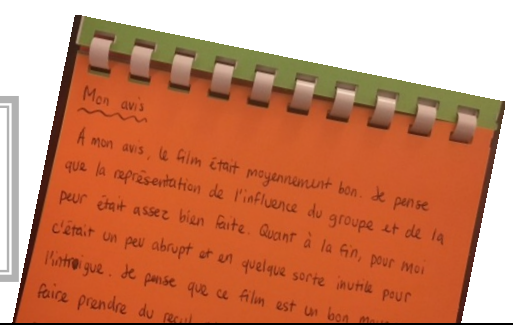 Mon avis
A mon avis, le film était moyennement bon. Je pense
que la représentation de l'influence du groupe et de la
peur était assez bien faite. Quant à la fin, pour moi
c'était un peu abrupt et en quelque sorte inutile pour
l'intrigue. Je pense que ce film est un bon
faire prendre du